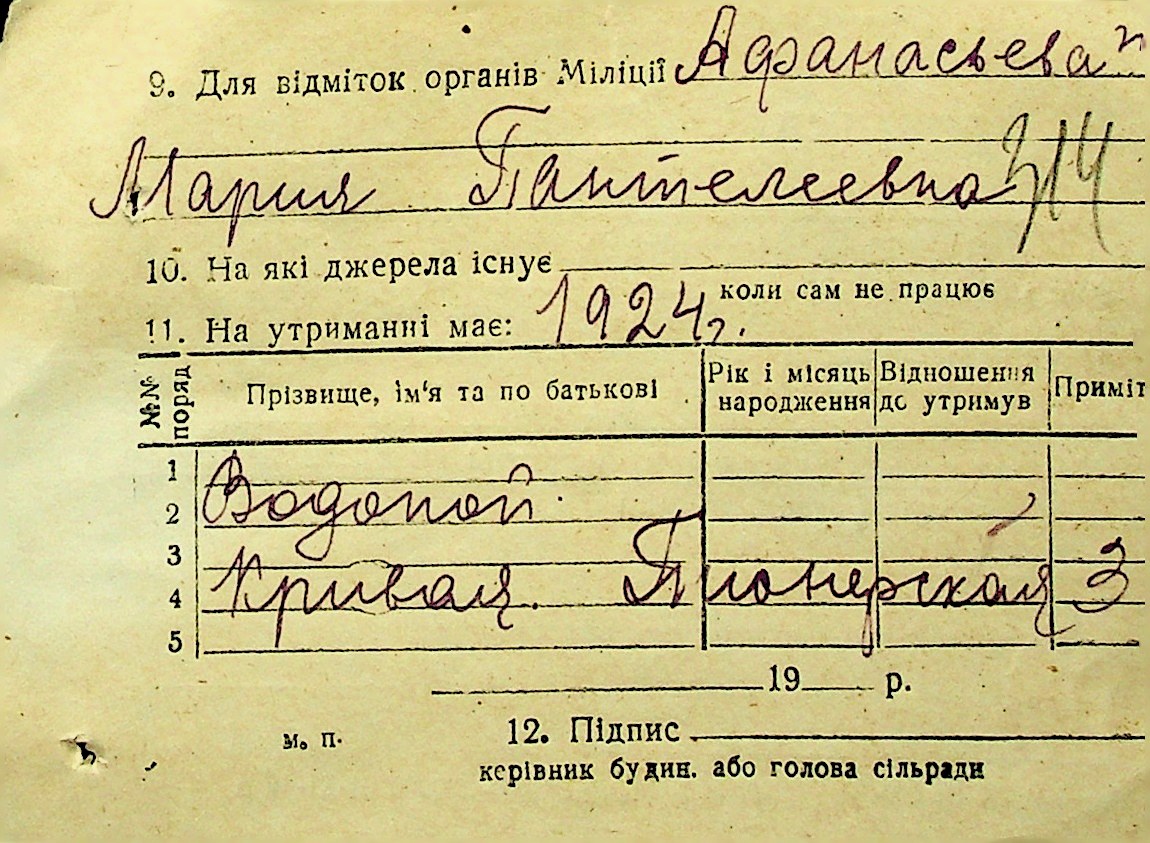 9. Для відміток органів Міліції Афанасьева
Мария Пантелеевна
10. На які джерела існує
коли сам не працює
11. На утриманні має: 1924 г.
№№ поряд Прізвище, ім'я та по батькові Рік і місяць народження Відношення до утримув Приміт
1
2 Водопой
3
4 Кривая. Пионерская 3
5
19 р.
м. п. 12. Підпис
керівник будин. або голова сільради